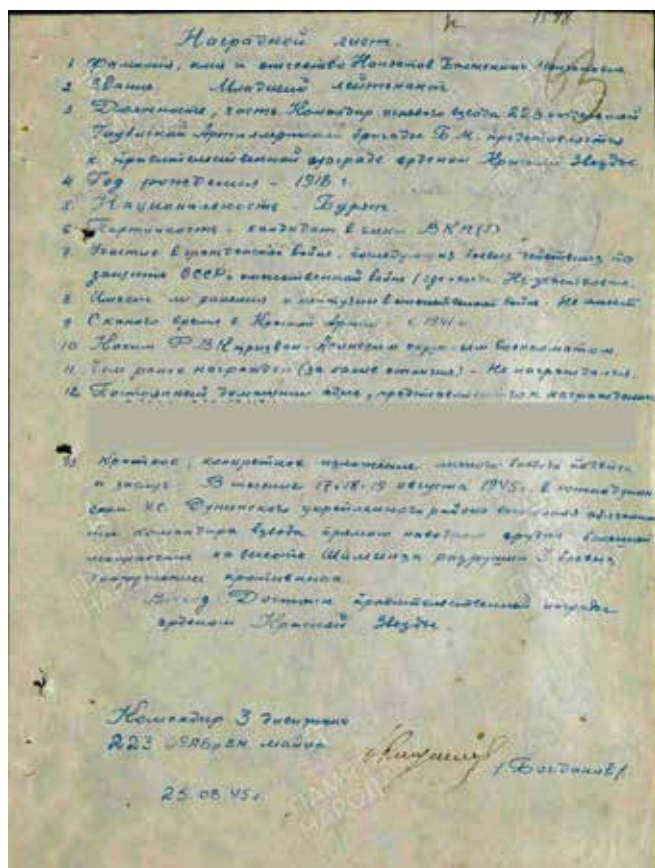 1598
Наградной лист.
1 Фамилия, имя и отчество
2 Звание Младший лейтенант
3 Должность, часть Командир огневого взвода 223 отдельной
Артиллерийской бригады Б.М. представляется
к правительственной награде орденом Красной Звезды
4 Год рождения - 1918 г.
5 Национальность - Бурят.
6 Партийность - кандидат в члены ВКП(б)
7 Участие в гражданской войне, последующих боевых действиях по
защите СССР, отечественной войне Не участвовал.
8 Имеет ли ранения и контузии в отечественной войне - Не имеет
9 С какого время в Красной Армии - с 1941 г.
10 Каким РВК призван военкоматом.
11 Чем ранее награжден (за какие отличия) - Не награждался.
12 Постоянный домашний адрес, представляемого к награждению
13 Краткое, конкретное изложение личного боевого подвига
и заслуг. В течение 17-18-19 августа 1945 г. в
укрепленного района
командира взвода прямой наводкой орудия большой
мощности на высоте разрушил 3 боевых
сооружения противника.
Вывод: Достоин правительственной награды
орденом Красной Звезды.
Командир 3 дивизиона
223 майор
/Богданов/.
25.08.45 г.
ПАМЯТЬ
НАРОДА